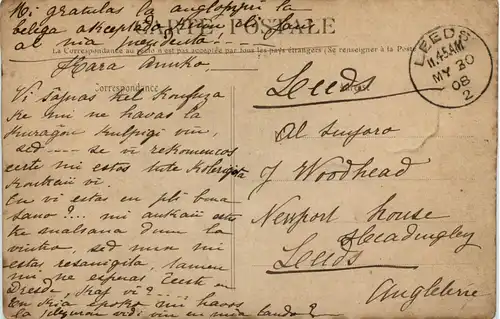 Mi gratulas la
belega akceptado, kiun oni faras
al nia
CARTE POSTALE
La Correspondance au recto n'est pas acceptée par tous les pays étrangers (Se renseigner à la Poste)
Kara Amiko,
Correspondance
Vi ŝajnas tiel
ke mi ne havas la
kuraĝon kulpigi vin,
sed --- se vi rekomencos
certe mi estos tute kolerigita
kontraŭ vi.
Ĉu vi estas en pli bona
sano?... mi ankaŭ estis
tre malsana dum la
vintro, sed nun mi
estas resanigita, tamen
mi ne esperas ĉeesti en
Dresde, kaj vi?
En kia epoko mi havos
la plezuron vidi vin en mia lando?
LEEDS
11.45AM
MY 30
08
2
Leeds
Al sinjoro
J Woodhead
Newport House
Headingley
Leeds
Angleterre